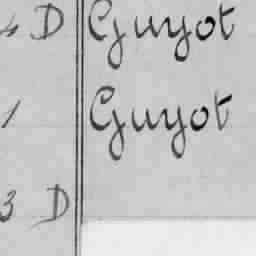 4 D Guyot
1 Guyot
3 D